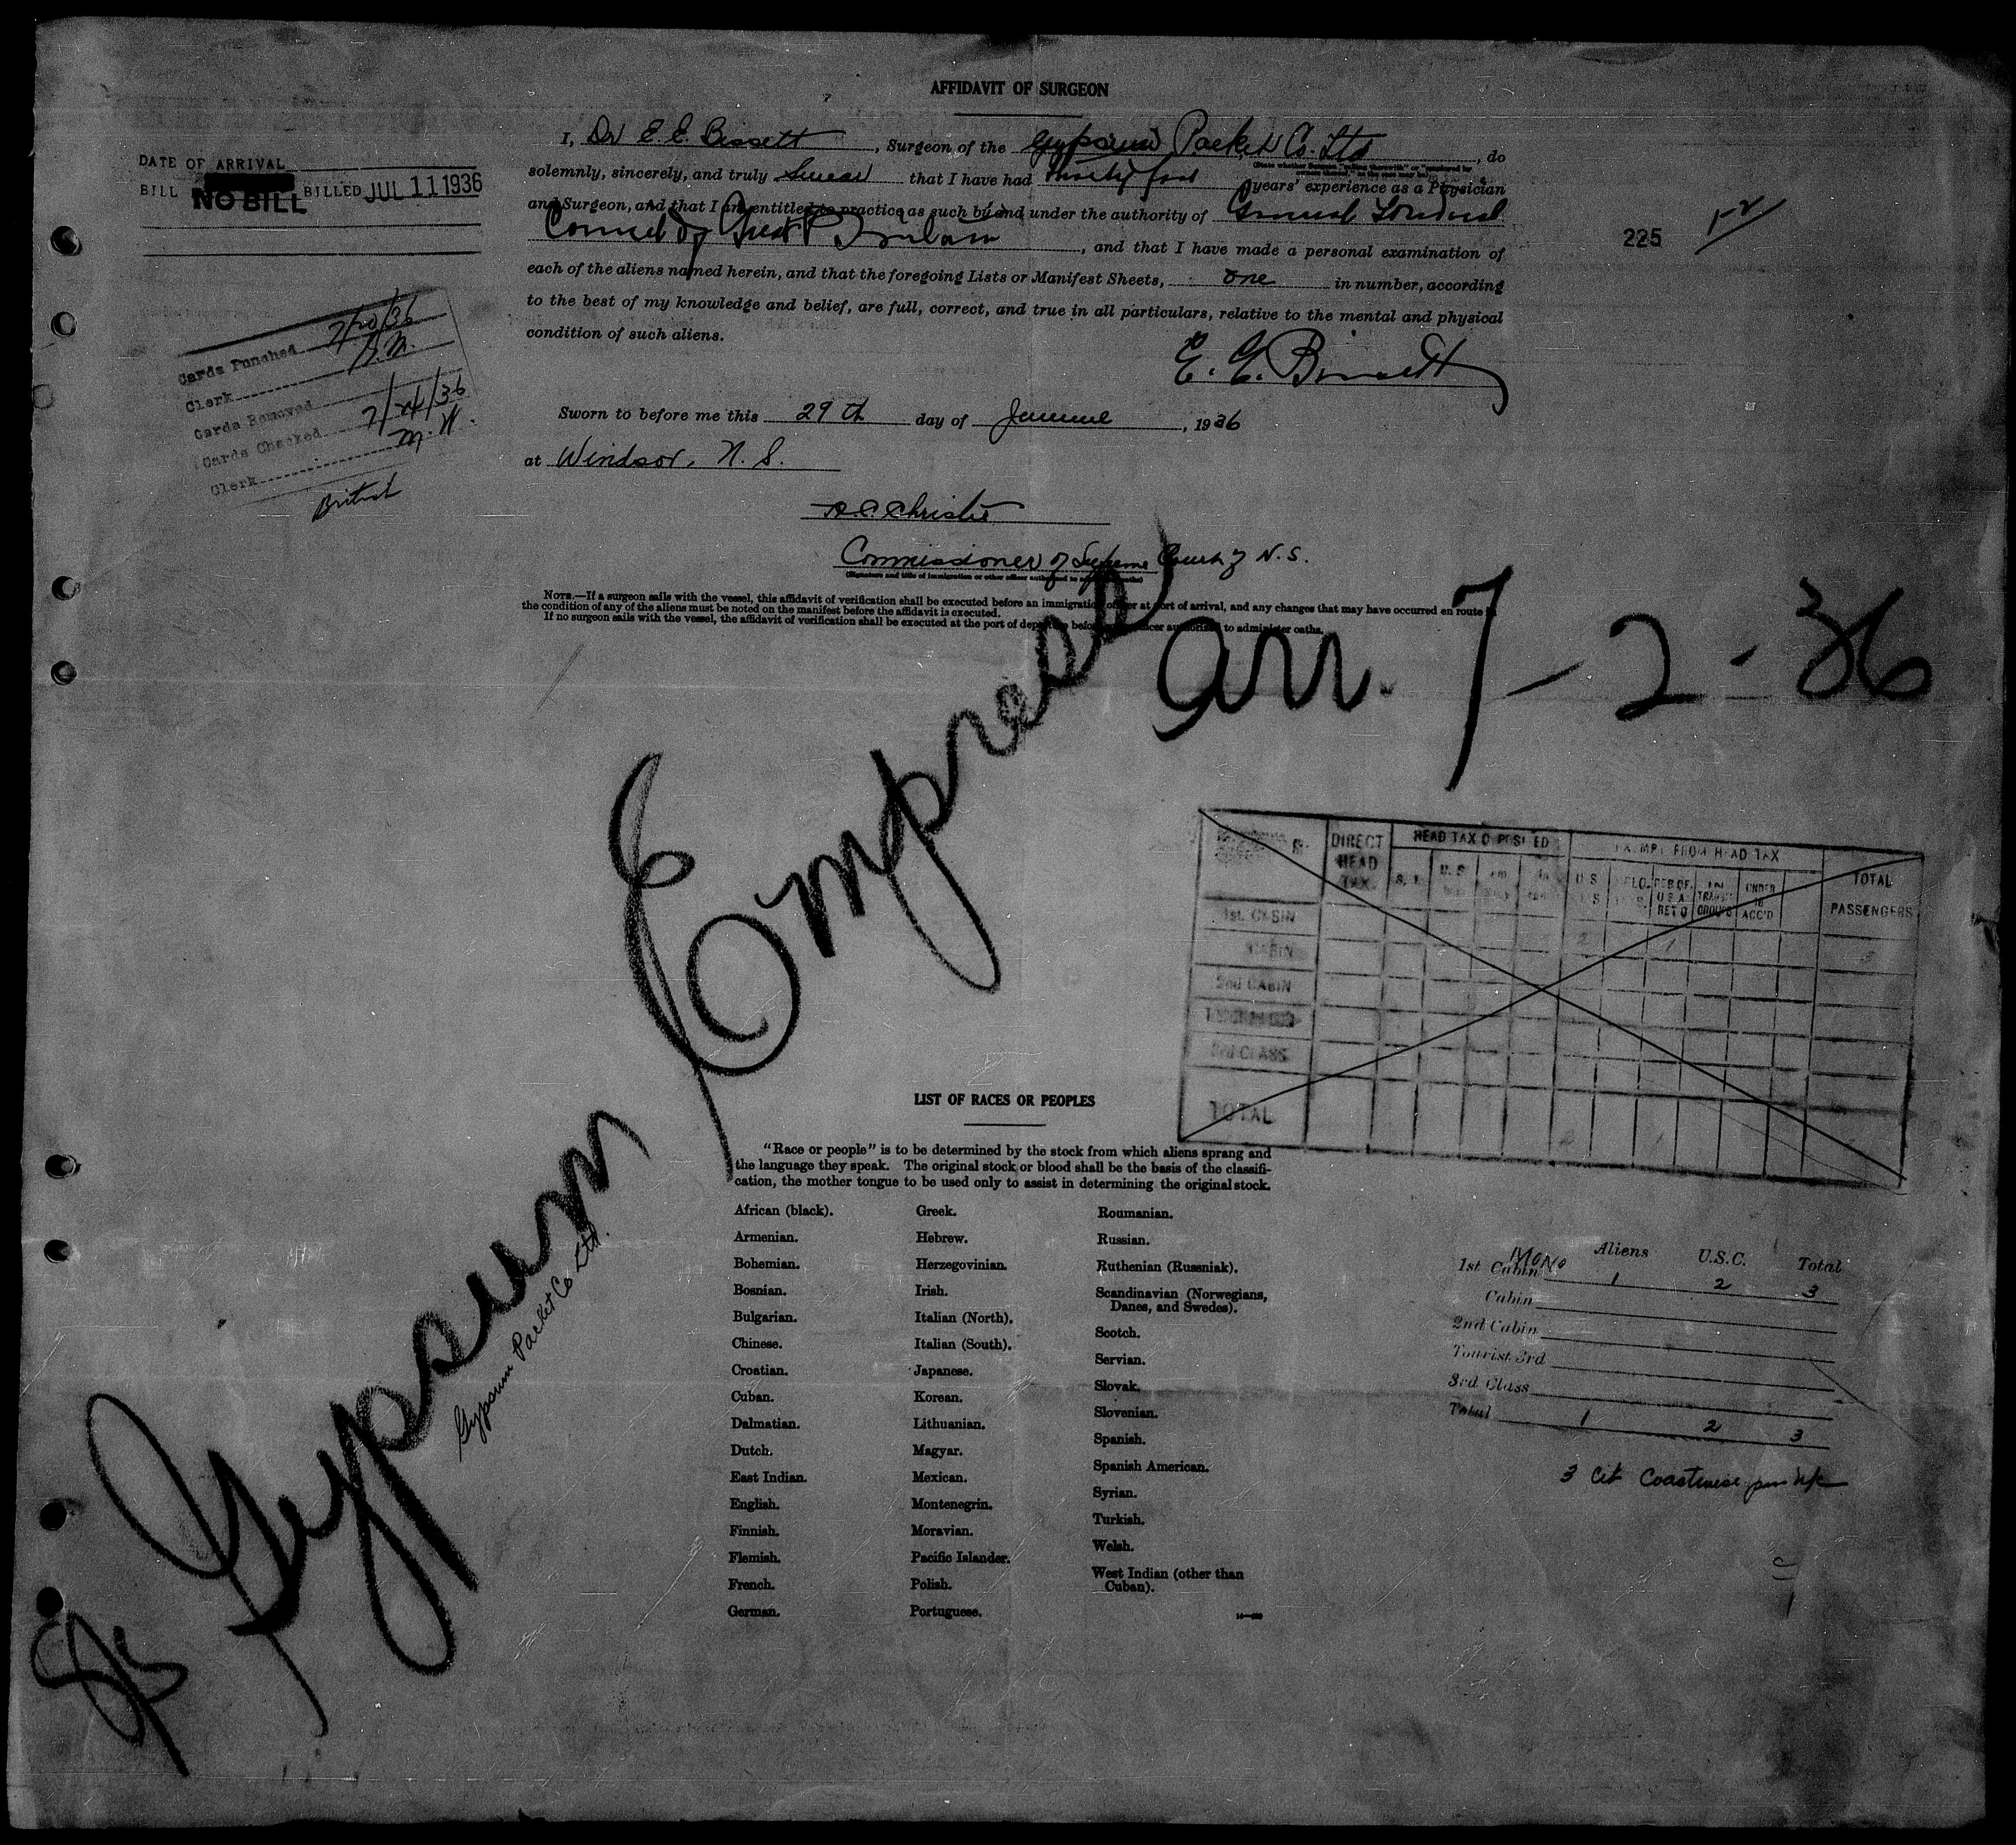 AFFIDAVIT OF SURGEON
I, Dr E. E. Bissett, Surgeon of the Gypsum Packet Co. Ltd, do
(State whether Surgeon "sailing therewith" or "employed by owners thereof," as the case may be)
solemnly, sincerely, and truly swear that I have had thirty four years' experience as a Physician
and Surgeon, and that I am entitled to practice as such by and under the authority of General
Council of Great Britain, and that I have made a personal examination of
each of the aliens named herein, and that the foregoing Lists or Manifest Sheets, one in number, according
to the best of my knowledge and belief, are full, correct, and true in all particulars, relative to the mental and physical
condition of such aliens.
E. E. Bissett
Sworn to before me this 29th day of, 1936
at Windsor, N. S.
Christie
Commissioner of Supreme Court of N.S.
(Signature and title of immigration or other officer authorized to administer oaths)
NOTE.—If a surgeon sails with the vessel, this affidavit of verification shall be executed before an immigration officer at port of arrival, and any changes that may have occurred en route in
the condition of any of the aliens must be noted on the manifest before the affidavit is executed.
If no surgeon sails with the vessel, the affidavit of verification shall be executed at the port of departure before an officer authorized to administer oaths.
DATE OF ARRIVAL
BILL NO BILL BILLED JUL 11 1936
225
Cards Punched 7/20/36
Clerk
Cards Removed
Cards Checked 7/24/36
Clerk M. W.
British
SS Gypsum Empress arr. 7-2-36
Gypsum Packet Co Ltd.
DIRECT HEAD TAX
HEAD TAX DEPOSITED
EXEMPT FROM HEAD TAX
TOTAL PASSENGERS
IN TRANSIT GROUPS
UNDER 16 ACC'D
1st. CABIN
CABIN
2nd CABIN
3rd CLASS
TOTAL
LIST OF RACES OR PEOPLES
"Race or people" is to be determined by the stock from which aliens sprang and
the language they speak. The original stock or blood shall be the basis of the classifi-
cation, the mother tongue to be used only to assist in determining the original stock.
African (black).
Armenian.
Bohemian.
Bosnian.
Bulgarian.
Chinese.
Croatian.
Cuban.
Dalmatian.
Dutch.
East Indian.
English.
Finnish.
Flemish.
French.
German.
Greek.
Hebrew.
Herzegovinian.
Irish.
Italian (North).
Italian (South).
Japanese.
Korean.
Lithuanian.
Magyar.
Mexican.
Montenegrin.
Moravian.
Pacific Islander.
Polish.
Portuguese.
Roumanian.
Russian.
Ruthenian (Russniak).
Scandinavian (Norwegians,
Danes, and Swedes).
Scotch.
Servian.
Slovak.
Slovenian.
Spanish.
Spanish American.
Syrian.
Turkish.
Welsh.
West Indian (other than
Cuban).
Aliens U.S.C. Total
MONO
1st Cabin 1 2 3
Cabin
2nd Cabin
Tourist 3rd
3rd Class
Total 1 2 3
3 Cit Coastwise